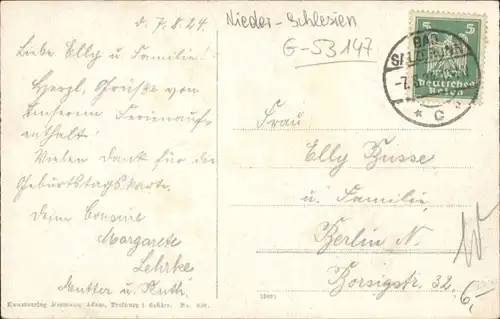 d. 7.8.24.
Nieder-Schlesien
G-53147
Liebe Elly u. Familie!
Herzl. Grüße von
unserem Ferienauf-
enthalt!
Vielen Dank für die
Geburtstagskarte.
Deine Cousine
Margarete
Lehrke
Mutter u. Ruth.
5 5
BAD
Deutsches
Reich
* C
Frau
Elly Busse
u. Familie
Berlin N.
Borsigstr. 32.
6,-
Kunstverlag Hermann Adam, Freiburg i. Schles. No.